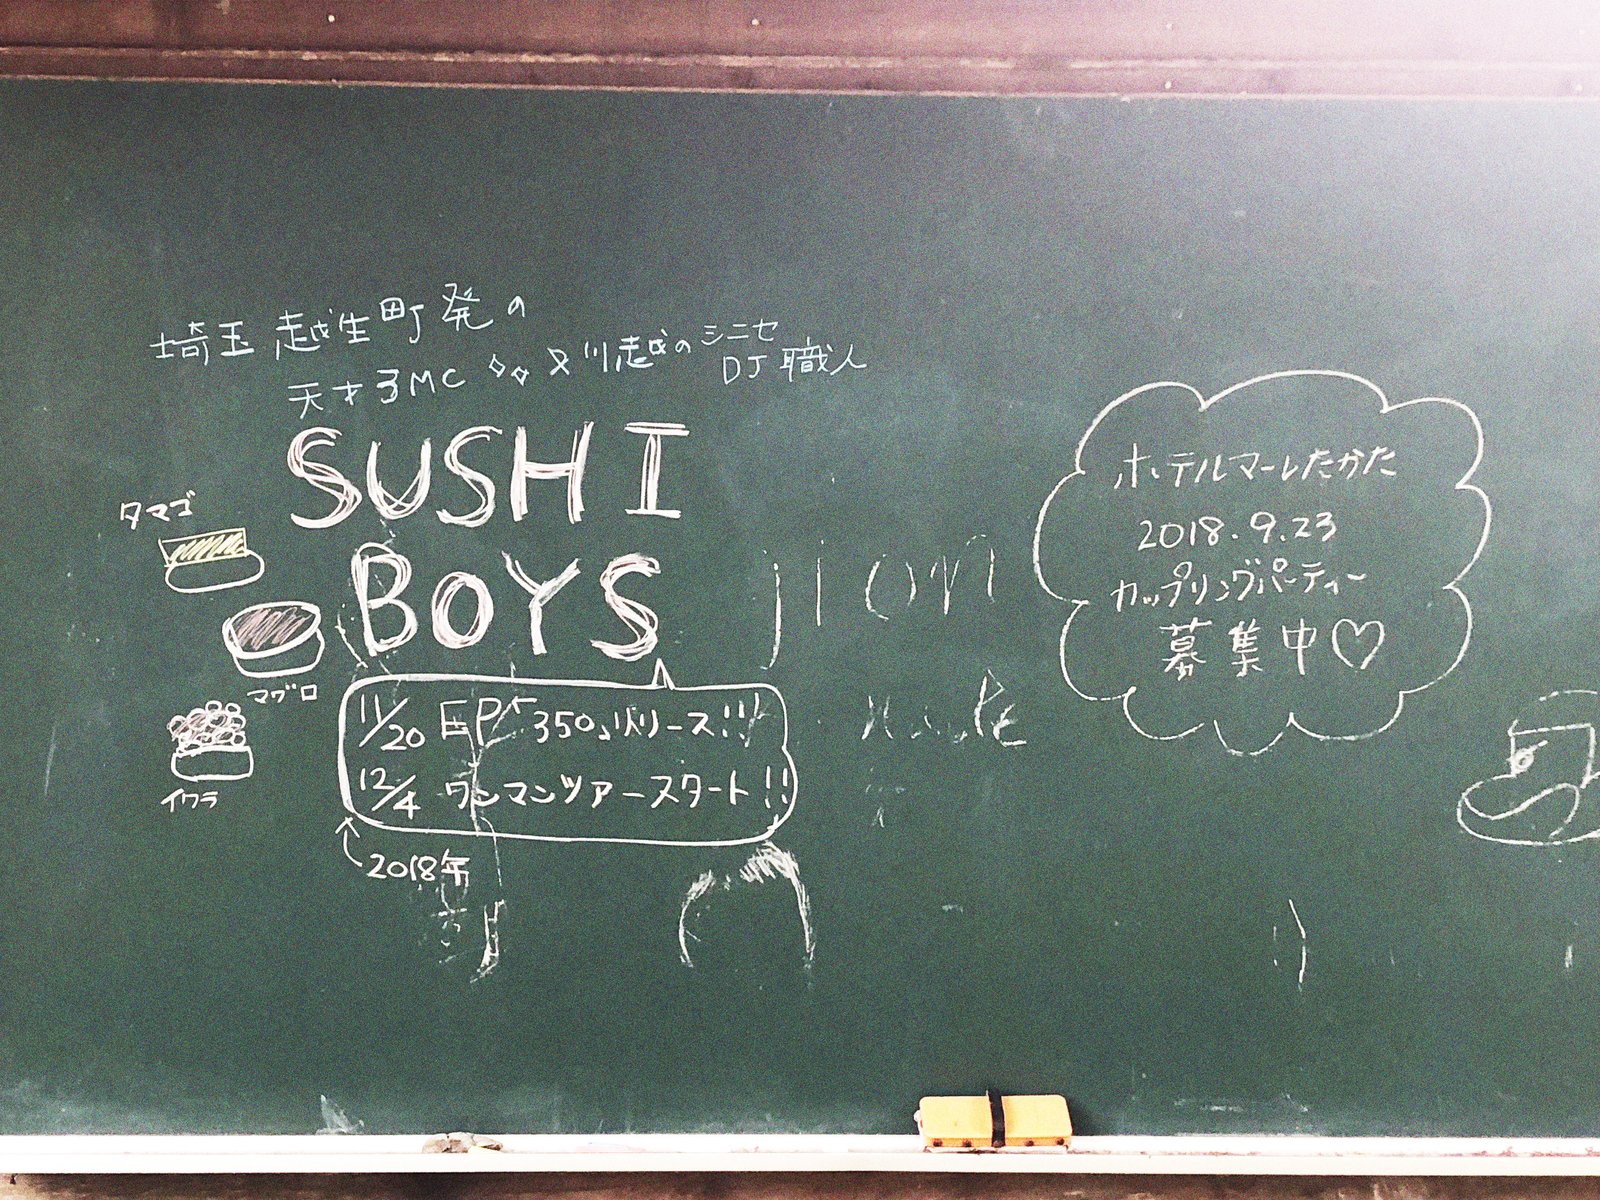 埼玉 越生町発の
天才3MC
川越のシニセ
DJ職人
SUSHI
BOYS
タマゴ
マグロ
イクラ
11/20 EP「350」リリース!!!
12/4 ワンマンツアースタート!!
2018年
ホテルマーレたかた
2018.9.23
カップリングパーティー
募集中♡